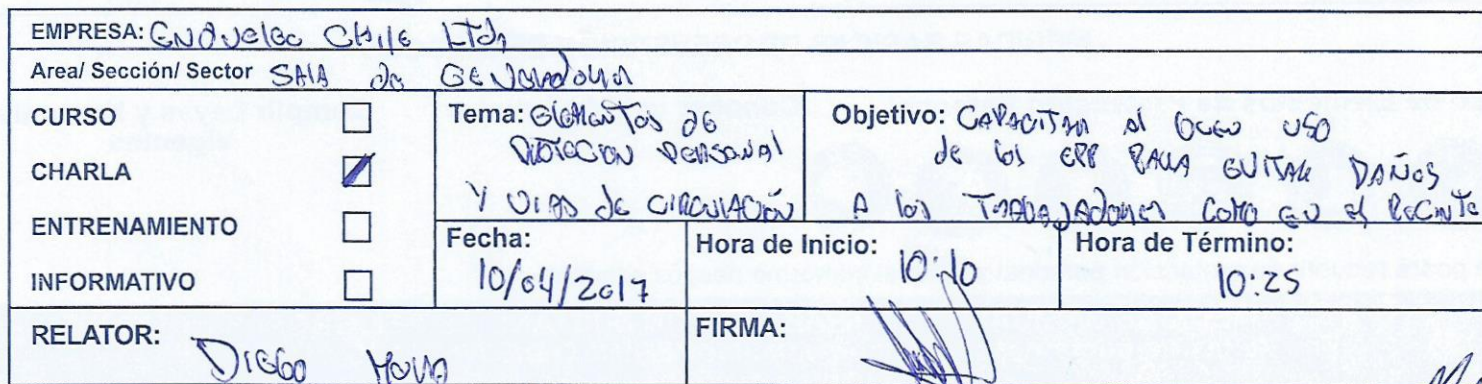 EMPRESA: CHILE LTDA
Area/ Sección/ Sector SALA de GENERADORA
CURSO
CHARLA
ENTRENAMIENTO
INFORMATIVO
Tema: ELEMENTOS DE
PROTECCION PERSONAL
Y VIAS de CIRCULACIÓN
Objetivo: CAPACITAR Al BUEN USO
de los EPP PARA EVITAR DAÑOS
A los TRABAJADORES COMO EN el RECINTO
Fecha:
10/04/2017
Hora de Inicio:
10:10
Hora de Término:
10:25
RELATOR:
DIEGO
FIRMA: